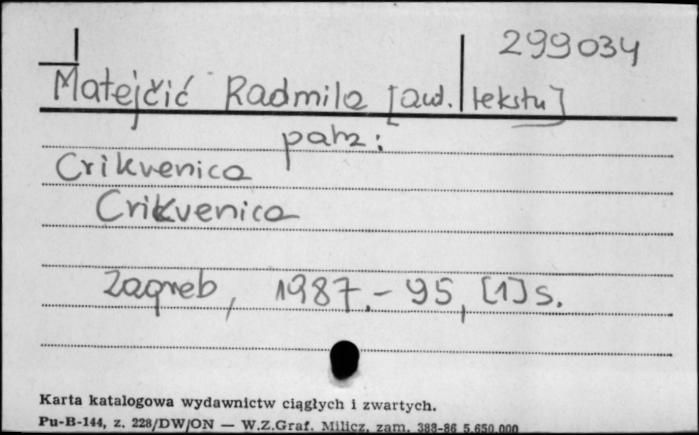 299034
Matejčić Radmila [aut. tekstu]
patrz:
Crikvenica
Crikvenica
Zagreb, 1987.- 95, [1] s.
Karta katalogowa wydawnictw ciągłych i zwartych.
Pu-B-144, z. 228/DW/ON — W.Z.Graf. Milicz, zam. 388-86 5.650.000